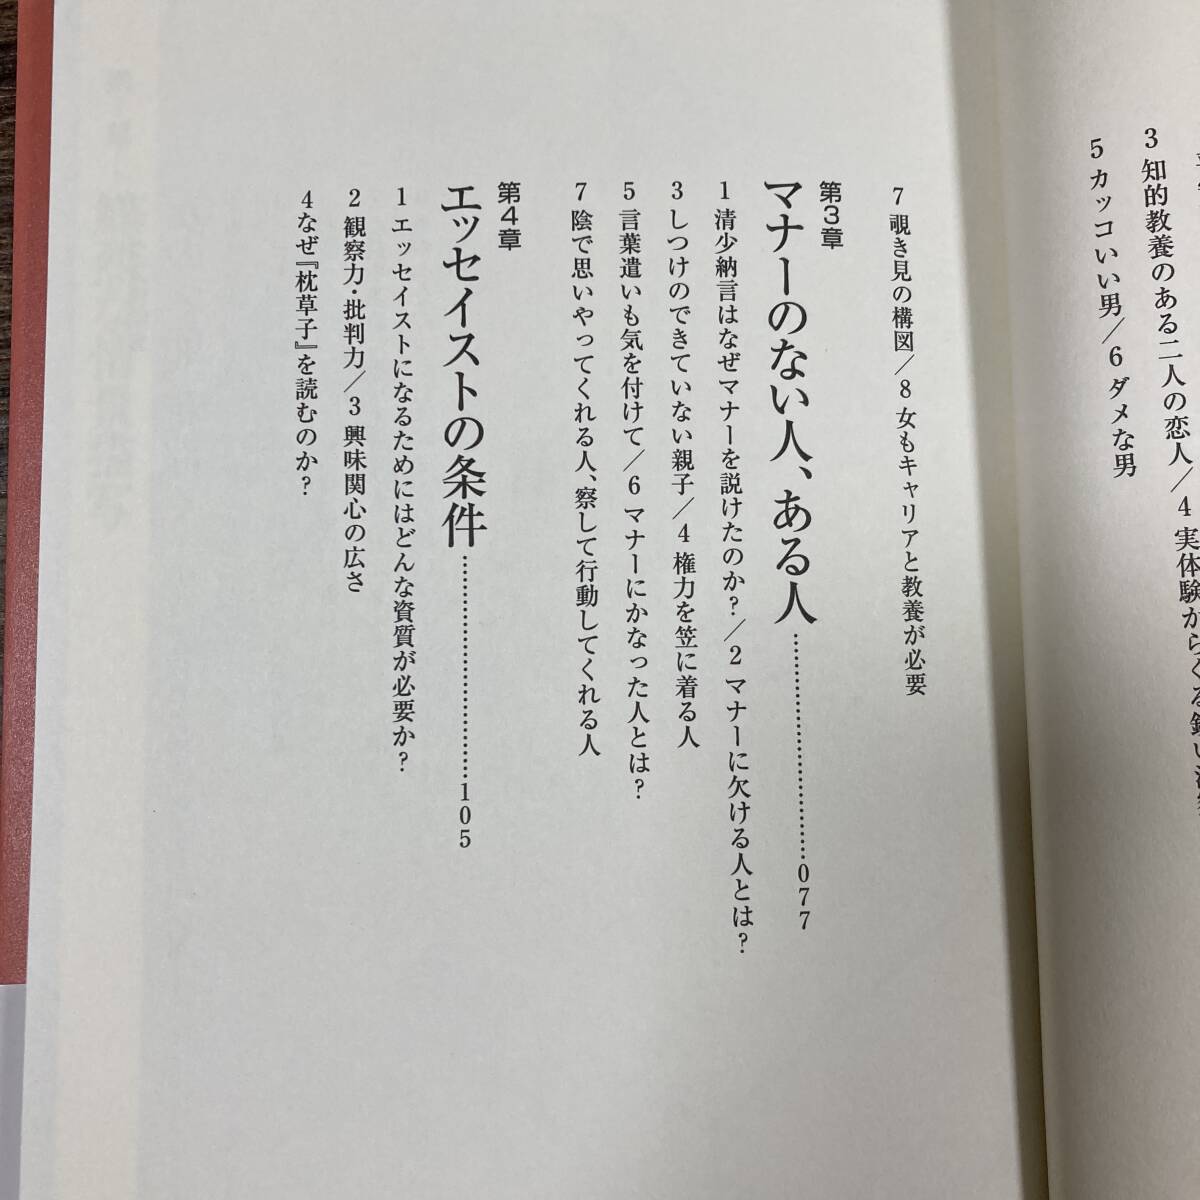 3 知的教養のある二人の恋人/4 実体験からくる鋭い
5 カッコいい男/6 ダメな男
7 覗き見の構図/8 女もキャリアと教養が必要
第3章
マナーのない人、ある人……………………077
1 清少納言はなぜマナーを説けたのか?/2 マナーに欠ける人とは?
3 しつけのできていない親子/4 権力を笠に着る人
5 言葉遣いも気を付けて/6 マナーにかなった人とは?
7 陰で思いやってくれる人、察して行動してくれる人
第4章
エッセイストの条件……………………105
1 エッセイストになるためにはどんな資質が必要か?
2 観察力・批判力/3 興味関心の広さ
4 なぜ『枕草子』を読むのか?